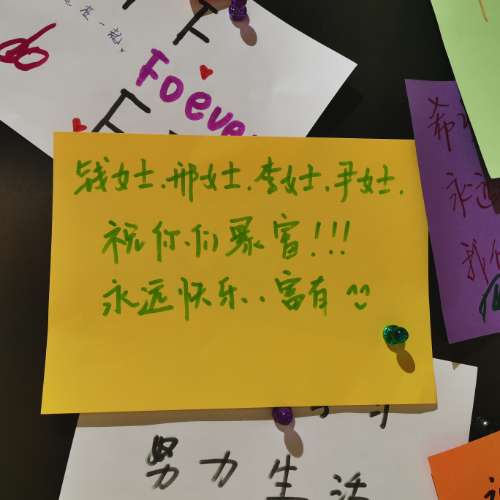 是在一起
Foever
钱女士.邢女士.李女士.尹女士.
祝你们暴富!!!
永远快乐..富有
希
永远
我们
努力生活